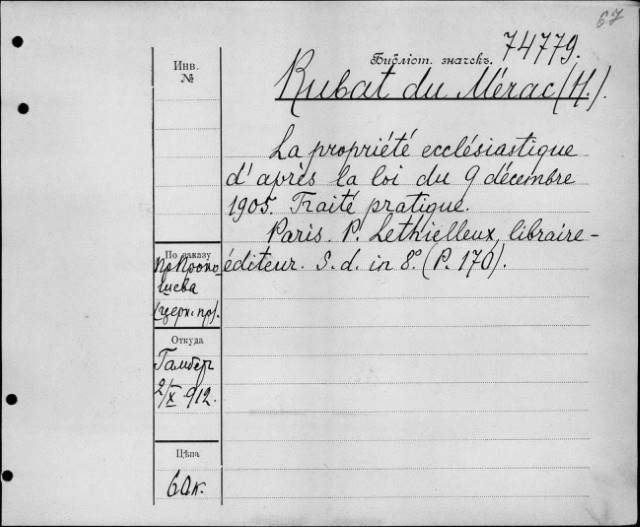 67
74779.
Инв.
№
Библіот. значекъ.
Rubat du Mérac (H.).
La propriété ecclésiastique
d'après la loi du 9 décembre
1905. Traité pratique.
Paris. P. Lethielleux, libraire-
éditeur. S. d. in 8º. (P. 170).
По заказу
(церк. пр).
Откуда
2/X 912.
Цѣна
60к.